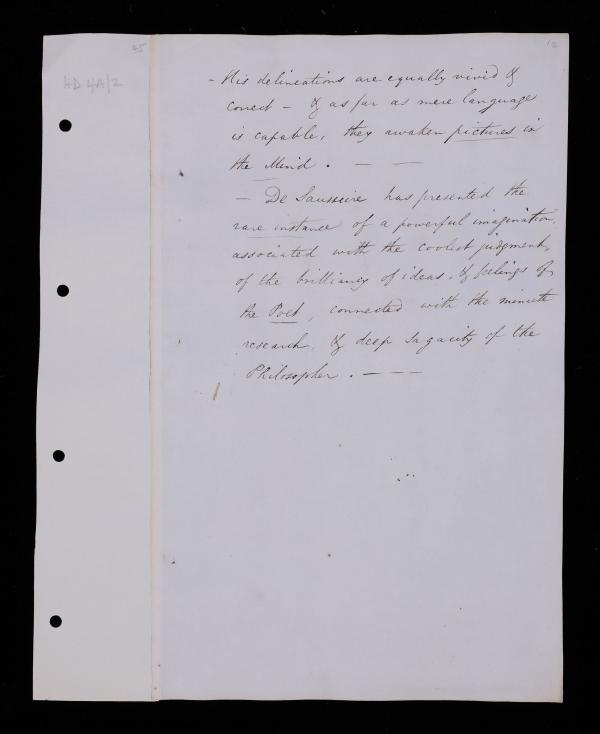 45
12
HD 4A/2
- His delineations are equally vivid &
correct - & as far as mere language
is capable, they awaken pictures in
the Mind . — —
- De Saussure has presented the
rare instance of a powerful imagination,
associated with the coolest judgment,
of the brilliancy of ideas, & feelings of
the Poet, connected with the minute
research, & deep sagacity of the
Philosopher . — — —